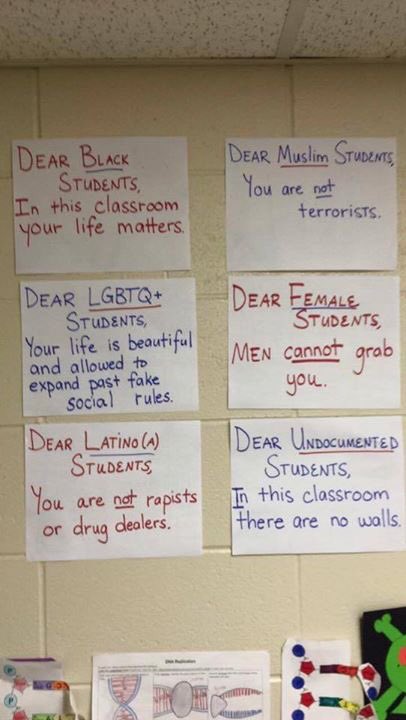 DEAR BLACK
STUDENTS,
In this classroom
your life matters.
DEAR Muslim STUDENTS,
You are not
terrorists.
DEAR LGBTQ+
STUDENTS,
Your life is beautiful
and allowed to
expand past fake
social rules.
DEAR FEMALE
STUDENTS,
MEN cannot grab
you.
DEAR LATINO(A)
STUDENTS,
You are not rapists
or drug dealers.
DEAR UNDOCUMENTED
STUDENTS,
In this classroom
there are no walls.
DNA Replication